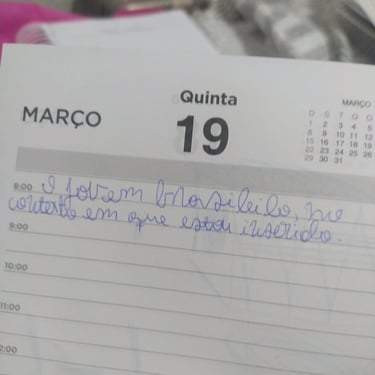 Quinta
MARÇO 19
MARÇO
D S T Q Q
1 2 3 4 5
8 9 10 11 12
15 16 17 18 19
22 23 24 25 26
29 30 31
8:00 O jovem brasileilo, no
contexto em que estou inserido.
9:00
10:00
11:00
2:00